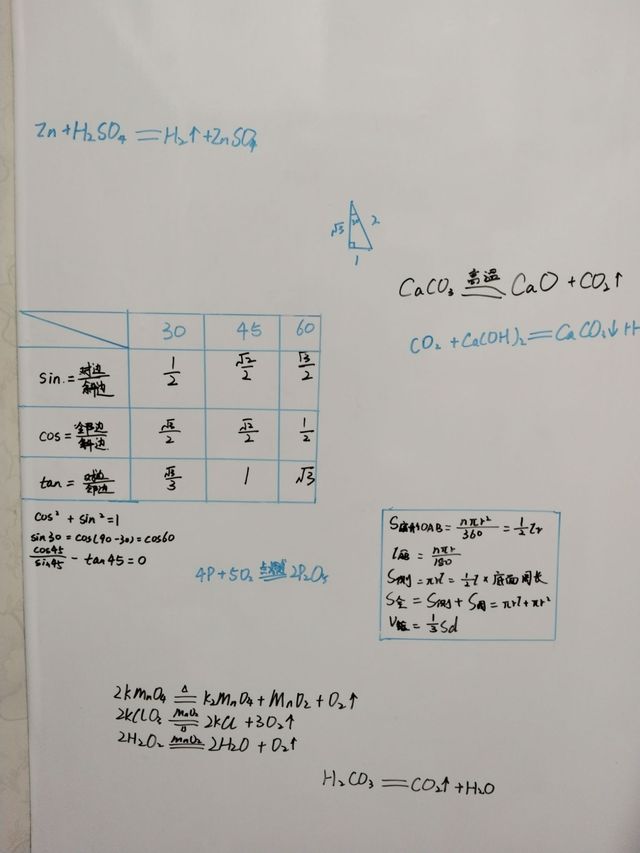 Zn + H₂SO₄ = H₂↑ + ZnSO₄
√3 30 2
1
CaCO₃ 高温 CaO + CO₂↑
CO₂ + Ca(OH)₂ = CaCO₃↓ + H
30 45 60
sin = 对边/斜边 1/2 √2/2 √3/2
cos = 邻边/斜边 √3/2 √2/2 1/2
tan = 对边/邻边 √3/3 1 √3
cos² + sin² = 1
sin30 = cos(90-30) = cos60
cos45/sin45 - tan45 = 0
4P + 5O₂ 点燃 2P₂O₅
S扇形OAB = nπr²/360 = 1/2 lr
l扇 = nπr/180
S侧 = πrl = 1/2 l × 底面周长
S全 = S侧 + S圆 = πrl + πr²
V锥 = 1/3 Sd
2KMnO₄ △ K₂MnO₄ + MnO₂ + O₂↑
2KClO₃ MnO₂ △ 2KCl + 3O₂↑
2H₂O₂ MnO₂ 2H₂O + O₂↑
H₂CO₃ = CO₂↑ + H₂O